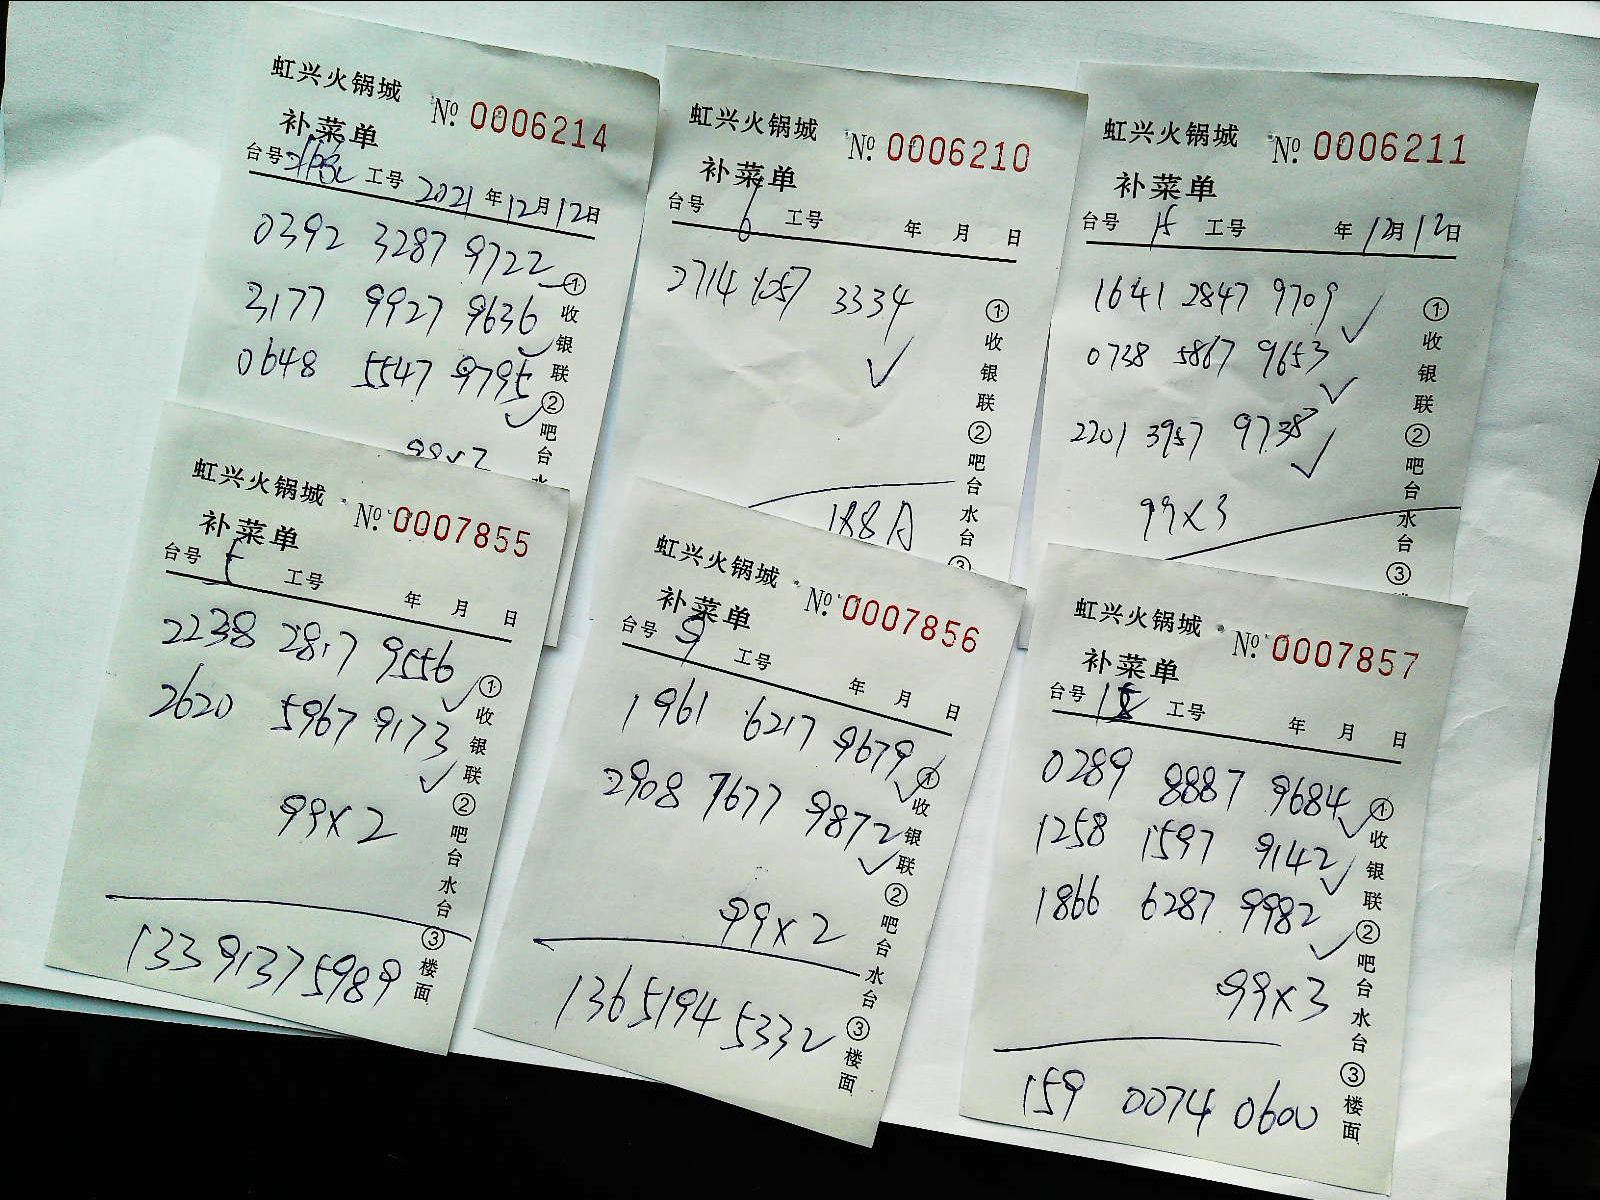 虹兴火锅城 № 0006214
补菜单
台号 工号 2021年12月12日
0392 3287 9722
3177 9927 9636
0648 5547 9795
99×2
①收银联②吧台水
虹兴火锅城 № 0006210
补菜单
台号 6 工号 年 月 日
2714 1257 3334
188A
①收银联②吧台水台③
虹兴火锅城 № 0006211
补菜单
台号 15 工号 年12月12日
1641 2847 9709
0738 5867 9653
2201 3957 9738
99×3
①收银联②吧台水台③
虹兴火锅城 № 0007855
补菜单
台号 5 工号 年 月 日
2238 2817 9556
2620 5967 9173
99×2
13391375989
①收银联②吧台水台③楼面
虹兴火锅城 № 0007856
补菜单
台号 9 工号 年 月 日
1961 6217 9679
2908 7677 9872
99×2
13651945332
①收银联②吧台水台③楼面
虹兴火锅城 № 0007857
补菜单
台号 工号 年 月 日
0289 8887 9684
1258 1597 9142
1866 6287 9982
99×3
159 0074 0600
①收银联②吧台水台③楼面